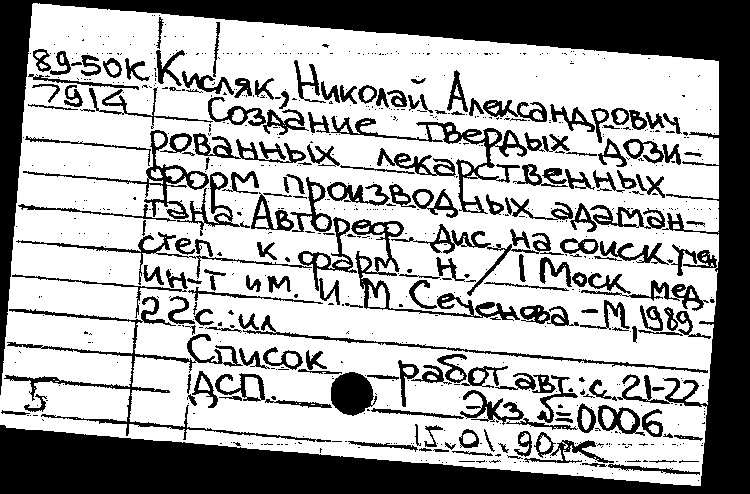 89-50к Кисляк, Николай Александрович
7914 Создание твердых дози-
рованных лекарственных
форм производных адаман-
тана: Автореф. дис. на соиск. учен
степ. к. фарм. н. / I Моск. мед.
ин-т им. И. М. Сеченова. – М, 1989 –
22 с.: ил
Список работ авт.: с 21-22
5 ДСП. Экз. № 0006
15.01.90